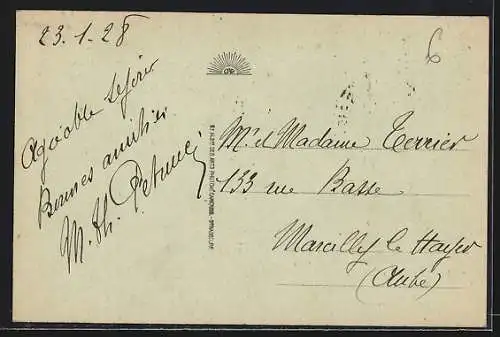 23.1.28
6
Agréable Séjour
Bonnes amitiés
M. Th.
Mr et Madame Terrier
133 rue Basse
Marcilly le Hayer
(Aube)